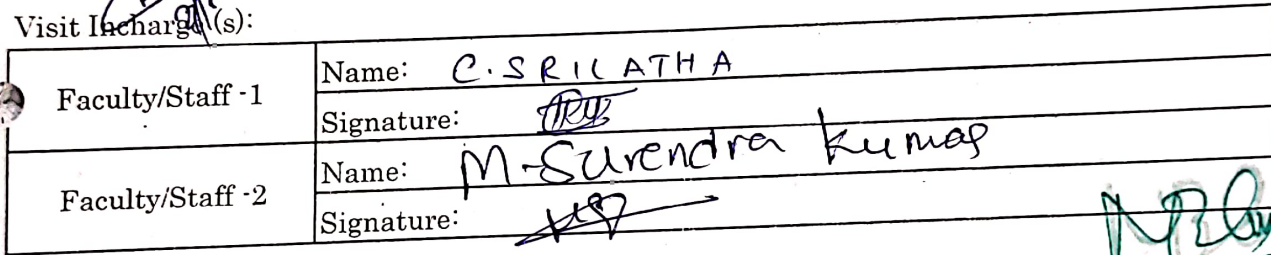 Visit Incharge(s):
Faculty/Staff -1
Name: C. SRILATHA
Signature:
Faculty/Staff -2
Name: M. Surendra Kumar
Signature: